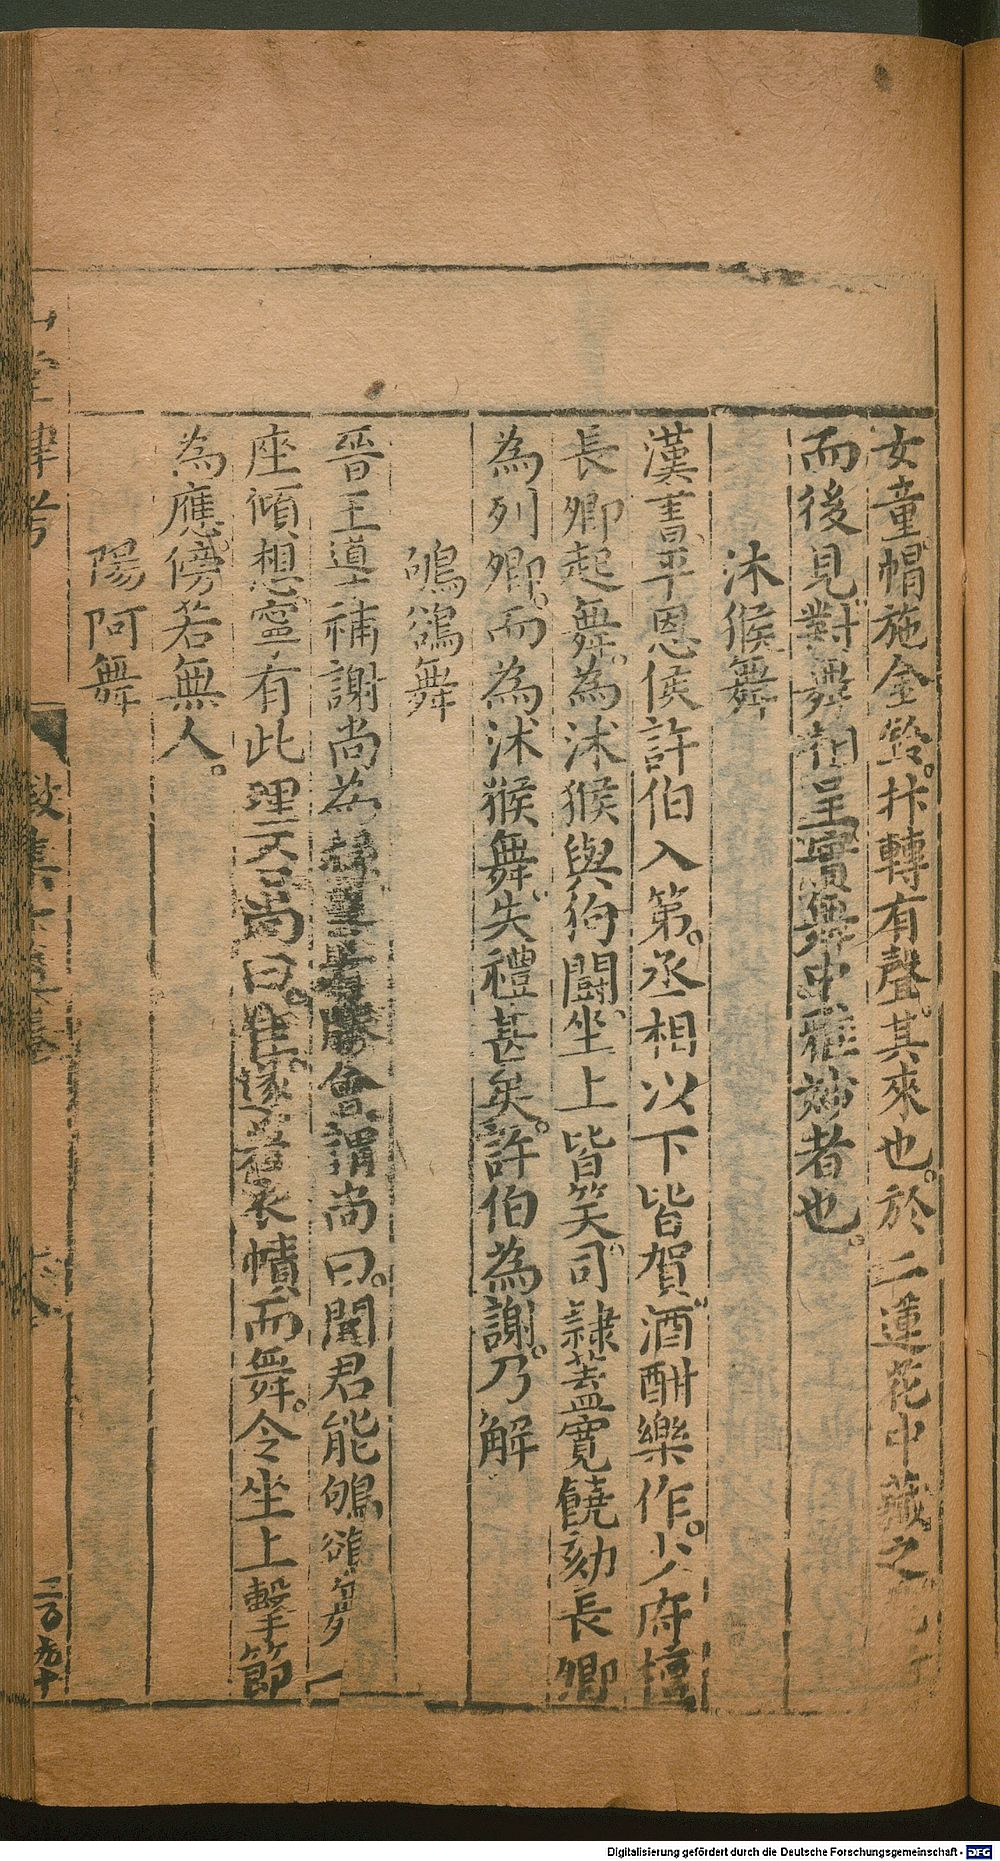 女童帽施金鈴。抃轉有聲。其來也。於二蓮花中藏之
而後見對舞相呈實舞中雅妙者也。
沐猴舞
漢書平恩侯許伯入第。丞相以下皆賀酒酣樂作。少府檀
長卿起舞。為沭猴與狗鬬坐上皆笑。司隷蓋寬饒劾長卿
為列卿。而為沭猴舞失禮甚矣。許伯為謝。乃解
鴝鵒舞
晉王導補謝尚為掾書着勝會謂尚曰。聞君能鴝鵒舞一
座傾想寧有此理不尚曰。佳遂著衣幘而舞。令坐上擊節
為應。傍若無人。
陽阿舞
山堂肆考
徵集
二百九十
Digitalisierung gefördert durch die Deutsche Forschungsgemeinschaft - DFG